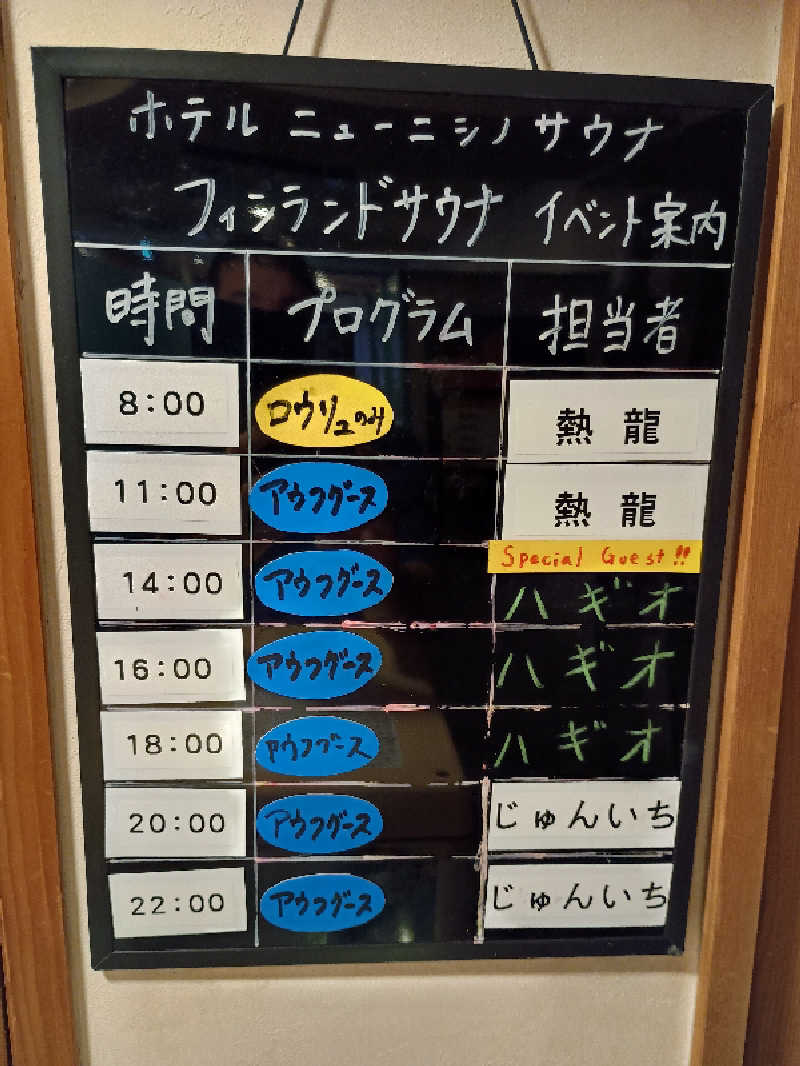 ホテル ニューニシノ サウナ
フィンランドサウナ イベント案内
時間 プログラム 担当者
8:00 ロウリュのみ 熱 龍
11:00 アウフグース 熱 龍
Special Guest!!
14:00 アウフグース ハギオ
16:00 アウフグース ハギオ
18:00 アウフグース ハギオ
20:00 アウフグース じゅんいち
22:00 アウフグース じゅんいち